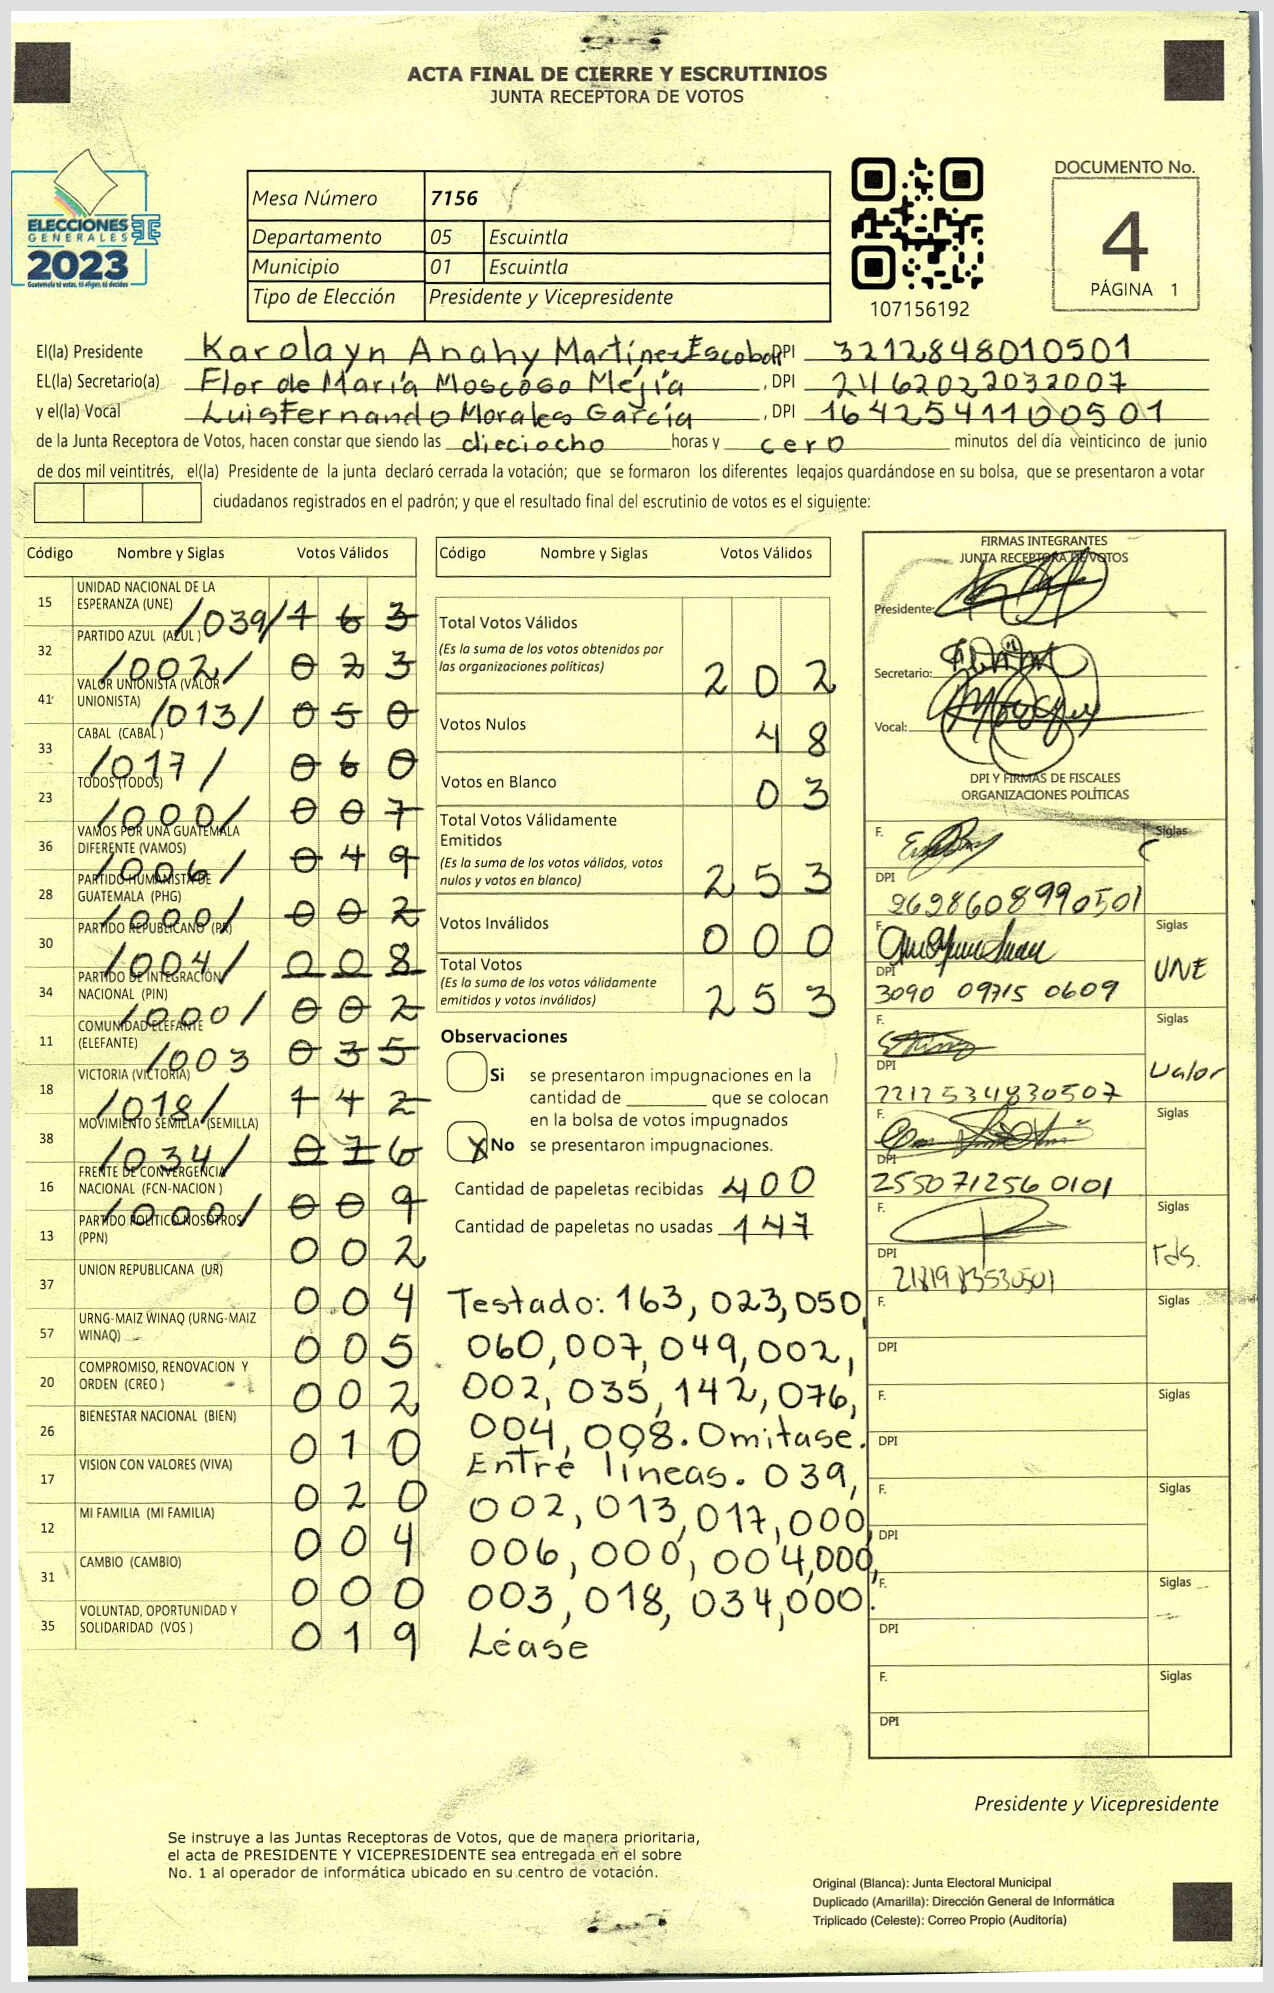 ACTA FINAL DE CIERRE Y ESCRUTINIOS
JUNTA RECEPTORA DE VOTOS
ELECCIONES
GENERALES
2023
Guatemala tú votas, tú eliges, tú decides
Mesa Número 7156
Departamento 05 Escuintla
Municipio 01 Escuintla
Tipo de Elección Presidente y Vicepresidente
107156192
DOCUMENTO No.
4
PÁGINA 1
El(la) Presidente Karolayn Anahy Martínez Escobar DPI 3212848010501
EL(la) Secretario(a) Flor de María Moscoso Mejía , DPI 2462022032007
y el(la) Vocal Luis Fernando Morales García , DPI 1642541100501
de la Junta Receptora de Votos, hacen constar que siendo las dieciocho horas y cero minutos del día veinticinco de junio
de dos mil veintitrés, el(la) Presidente de la junta declaró cerrada la votación; que se formaron los diferentes legajos guardándose en su bolsa, que se presentaron a votar
ciudadanos registrados en el padrón; y que el resultado final del escrutinio de votos es el siguiente:
Código Nombre y Siglas Votos Válidos
15 UNIDAD NACIONAL DE LA
ESPERANZA (UNE) /039/ 163
32 PARTIDO AZUL (AZUL) /002/ 023
41 VALOR UNIONISTA (VALOR
UNIONISTA) /013/ 050
33 CABAL (CABAL) /017/ 060
23 TODOS (TODOS) /000/ 007
36 VAMOS POR UNA GUATEMALA
DIFERENTE (VAMOS) /006/ 049
28 PARTIDO HUMANISTA DE
GUATEMALA (PHG) /000/ 002
30 PARTIDO REPUBLICANO (PR) /004/ 008
34 PARTIDO DE INTEGRACIÓN
NACIONAL (PIN) /000/ 002
11 COMUNIDAD ELEFANTE
(ELEFANTE) /003 035
18 VICTORIA (VICTORIA) /018/ 142
38 MOVIMIENTO SEMILLA (SEMILLA) /034/ 076
16 FRENTE DE CONVERGENCIA
NACIONAL (FCN-NACION) /000/ 009
13 PARTIDO POLITICO NOSOTROS
(PPN) 002
37 UNION REPUBLICANA (UR) 004
57 URNG-MAIZ WINAQ (URNG-MAIZ
WINAQ) 005
20 COMPROMISO, RENOVACION Y
ORDEN (CREO) 002
26 BIENESTAR NACIONAL (BIEN) 010
17 VISION CON VALORES (VIVA) 020
12 MI FAMILIA (MI FAMILIA) 004
31 CAMBIO (CAMBIO) 000
35 VOLUNTAD, OPORTUNIDAD Y
SOLIDARIDAD (VOS) 019
Código Nombre y Siglas Votos Válidos
Total Votos Válidos
(Es la suma de los votos obtenidos por
las organizaciones políticas) 202
Votos Nulos 48
Votos en Blanco 03
Total Votos Válidamente
Emitidos
(Es la suma de los votos válidos, votos
nulos y votos en blanco) 253
Votos Inválidos 000
Total Votos
(Es la suma de los votos válidamente
emitidos y votos inválidos) 253
Observaciones
Si se presentaron impugnaciones en la
cantidad de ________ que se colocan
en la bolsa de votos impugnados
X No se presentaron impugnaciones.
Cantidad de papeletas recibidas 400
Cantidad de papeletas no usadas 147
Testado: 163, 023, 050,
060, 007, 049, 002,
002, 035, 142, 076,
004, 008. Omitase.
Entre líneas. 039,
002, 013, 017, 000,
006, 000, 004, 000,
003, 018, 034, 000.
Léase
FIRMAS INTEGRANTES
JUNTA RECEPTORA DE VOTOS
Presidente:
Secretario:
Vocal:
DPI Y FIRMAS DE FISCALES
ORGANIZACIONES POLÍTICAS
F. Siglas
DPI
2628608990501
F. Siglas
UNE
DPI
3090 09715 0609
F. Siglas
Valor
DPI
2212534830507
F. Siglas
DPI
2550712560101
F. Siglas
DPI
2181983530501
F. Siglas
DPI
F. Siglas
DPI
F. Siglas
DPI
F. Siglas
DPI
F. Siglas
DPI
Presidente y Vicepresidente
Se instruye a las Juntas Receptoras de Votos, que de manera prioritaria,
el acta de PRESIDENTE Y VICEPRESIDENTE sea entregada en el sobre
No. 1 al operador de informática ubicado en su centro de votación.
Original (Blanca): Junta Electoral Municipal
Duplicado (Amarilla): Dirección General de Informática
Triplicado (Celeste): Correo Propio (Auditoría)